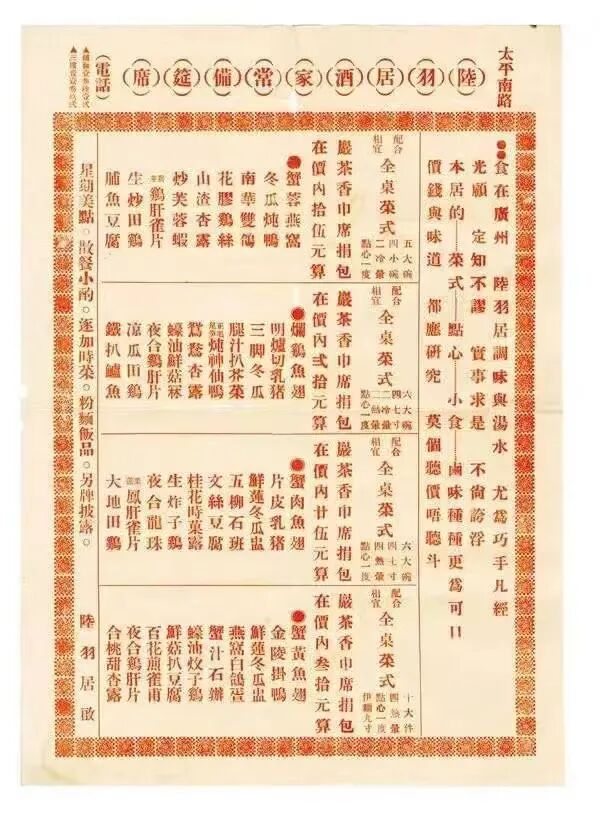 太平南路
陸羽居酒家常備筵席
電話
●●食在廣州 陸羽居調味與湯水 尤爲巧手凡經
光顧 定知不謬 實事求是 不尙誇浮
本居的……菜式……點心……小食……鹵味種種更爲可口
價錢與味道 都應研究 莫個聽價唔聽斗
配合相宜
全桌菜式
五大碗
四小碗
二冷葷
點心一度
巖茶香巾席捐包
在價內拾伍元算
●蟹蓉燕窩
冬瓜炖鴨
南華雙鴿
花膠鷄絲
山渣杏露
炒芙蓉蝦
鷄肝雀片
生炒田鷄
脯魚豆腐
配合相宜
全桌菜式
六大碗
四七寸
二冷葷
二熱葷
點心一度
巖茶香巾席捐包
在價內弍拾元算
●爛鷄魚翅
明爐切乳猪
三脚冬瓜
腿汁扒芥菜
炖神仙鴨
鴛鴦杏露
蠔油鮮菇冧
夜合鷄肝片
凉瓜田鷄
鐵扒鱸魚
配合相宜
全桌菜式
六大碗
四七寸
四熱葷
點心一度
巖茶香巾席捐包
在價內廿伍元算
●蟹肉魚翅
片皮乳猪
鮮蓮冬瓜盅
五柳石班
文絲豆腐
桂花時菓露
生炸子鷄
夜合龍珠
鳳肝雀片
大地田鷄
配合相宜
全桌菜式
十大件
四熱葷
點心一度
伊麵九寸
巖茶香巾席捐包
在價內叁拾元算
●蟹黃魚翅
金陵掛鴨
鮮蓮冬瓜盅
燕窩白鴿蛋
蟹汁石班
蠔油炆子鷄
鮮菇扒豆腐
百花煎雀甫
夜合鷄肝片
合桃甜杏露
星期美點。散餐小酌。逐加時菜。粉麵飯品。另牌披露。 陸羽居啟